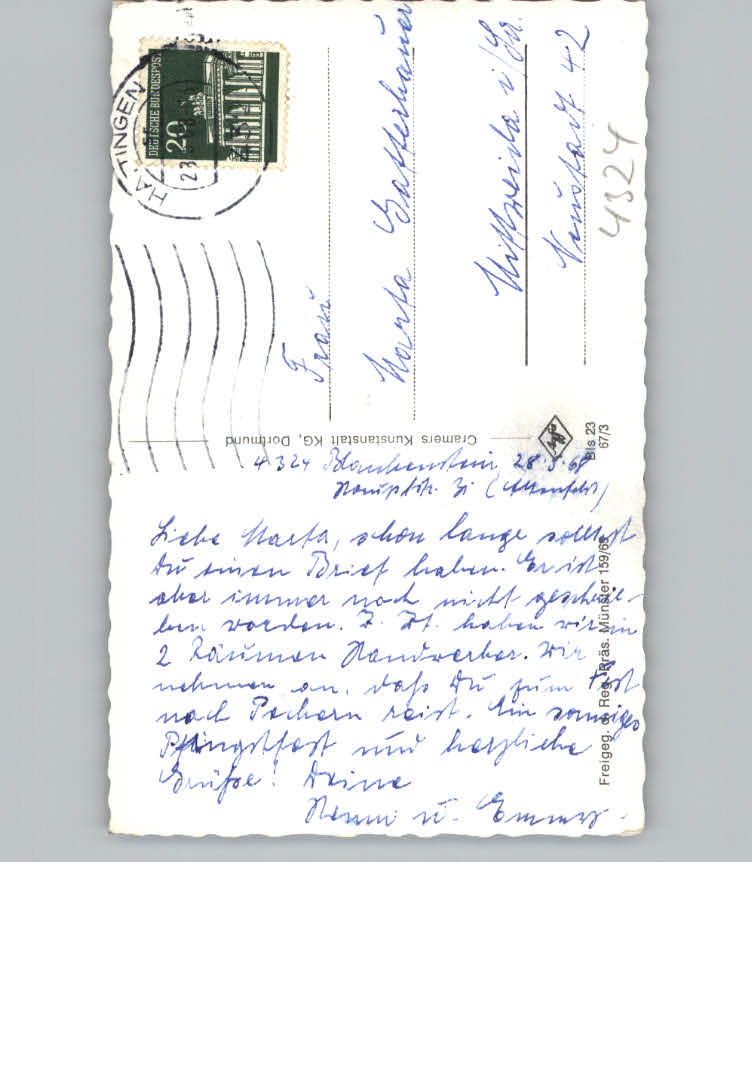 HATTINGEN
23
DEUTSCHE BUNDESPOST
20
Frau
Marta Gatterhauer
Mittweida i/Sa.
Neustadt 42
4324
Cramers Kunstanstalt KG, Dortmund
Bls 23
67/3
Freigeg. d. Reg. Präs. Münster 159/65
4324 Blankenstein, 28.5.68
Hauptstr. 31
Liebe Marta, schon lange solltest
Du einen Brief haben. Er ist
aber immer noch nicht geschrie-
ben worden. Z. Zt. haben wir in
2 Räumen Handwerker. Wir
nehmen an, daß Du zum Fest
nach Pechern reist. Ein sonniges
Pfingstfest und herzliche
Grüße! Deine
u. Emmy.